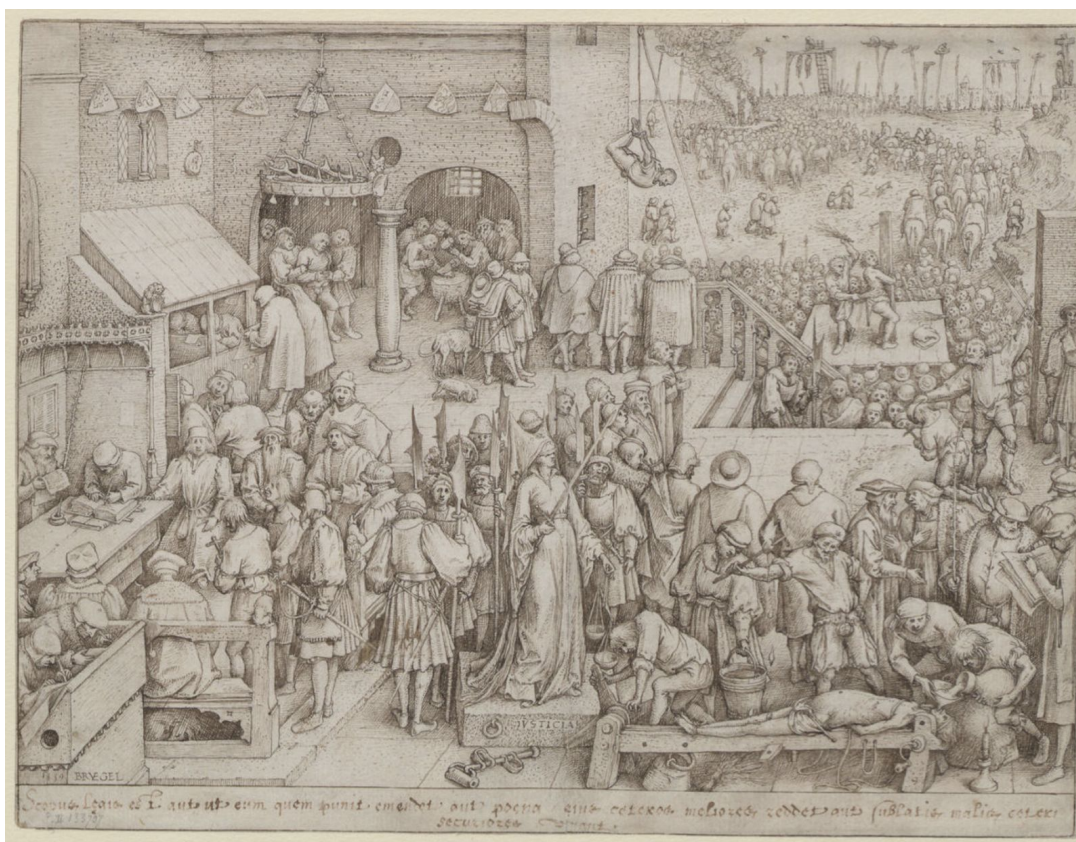 JVSTICIA
BRVEGEL
Scopus legis est aut ut eum quem punit emendet aut poena eius ceteros meliores reddet aut sublatis malis ceteri
securiores vivant.